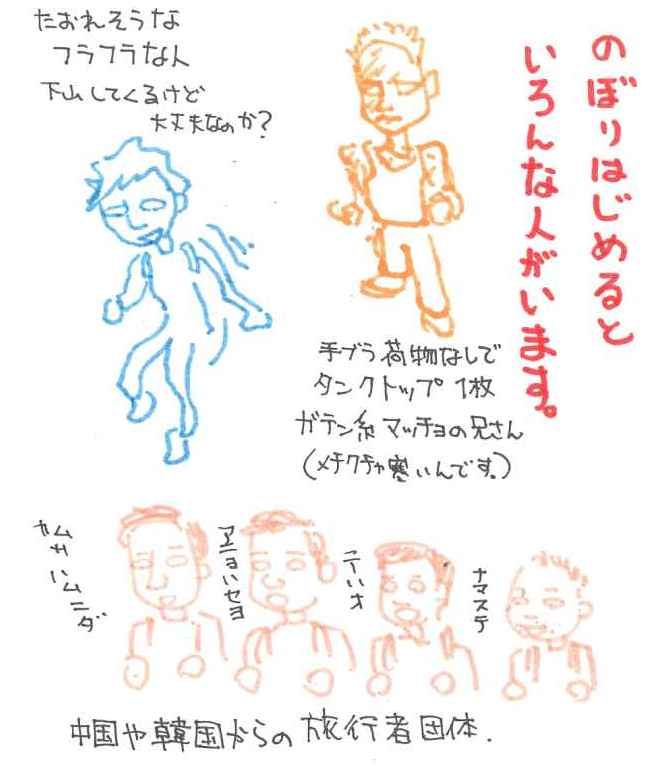 のぼりはじめると
いろんな人がいます。
たおれそうな
フラフラな人
下山してくるけど
大丈夫なのか?
手ブラ荷物なしで
タンクトップ1枚
ガテン系マッチョの兄さん
(メチクチャ寒いんです。)
カムサハムニダ
アニョハセヨ
ニーハオ
ナマステ
中国や韓国からの旅行者団体.